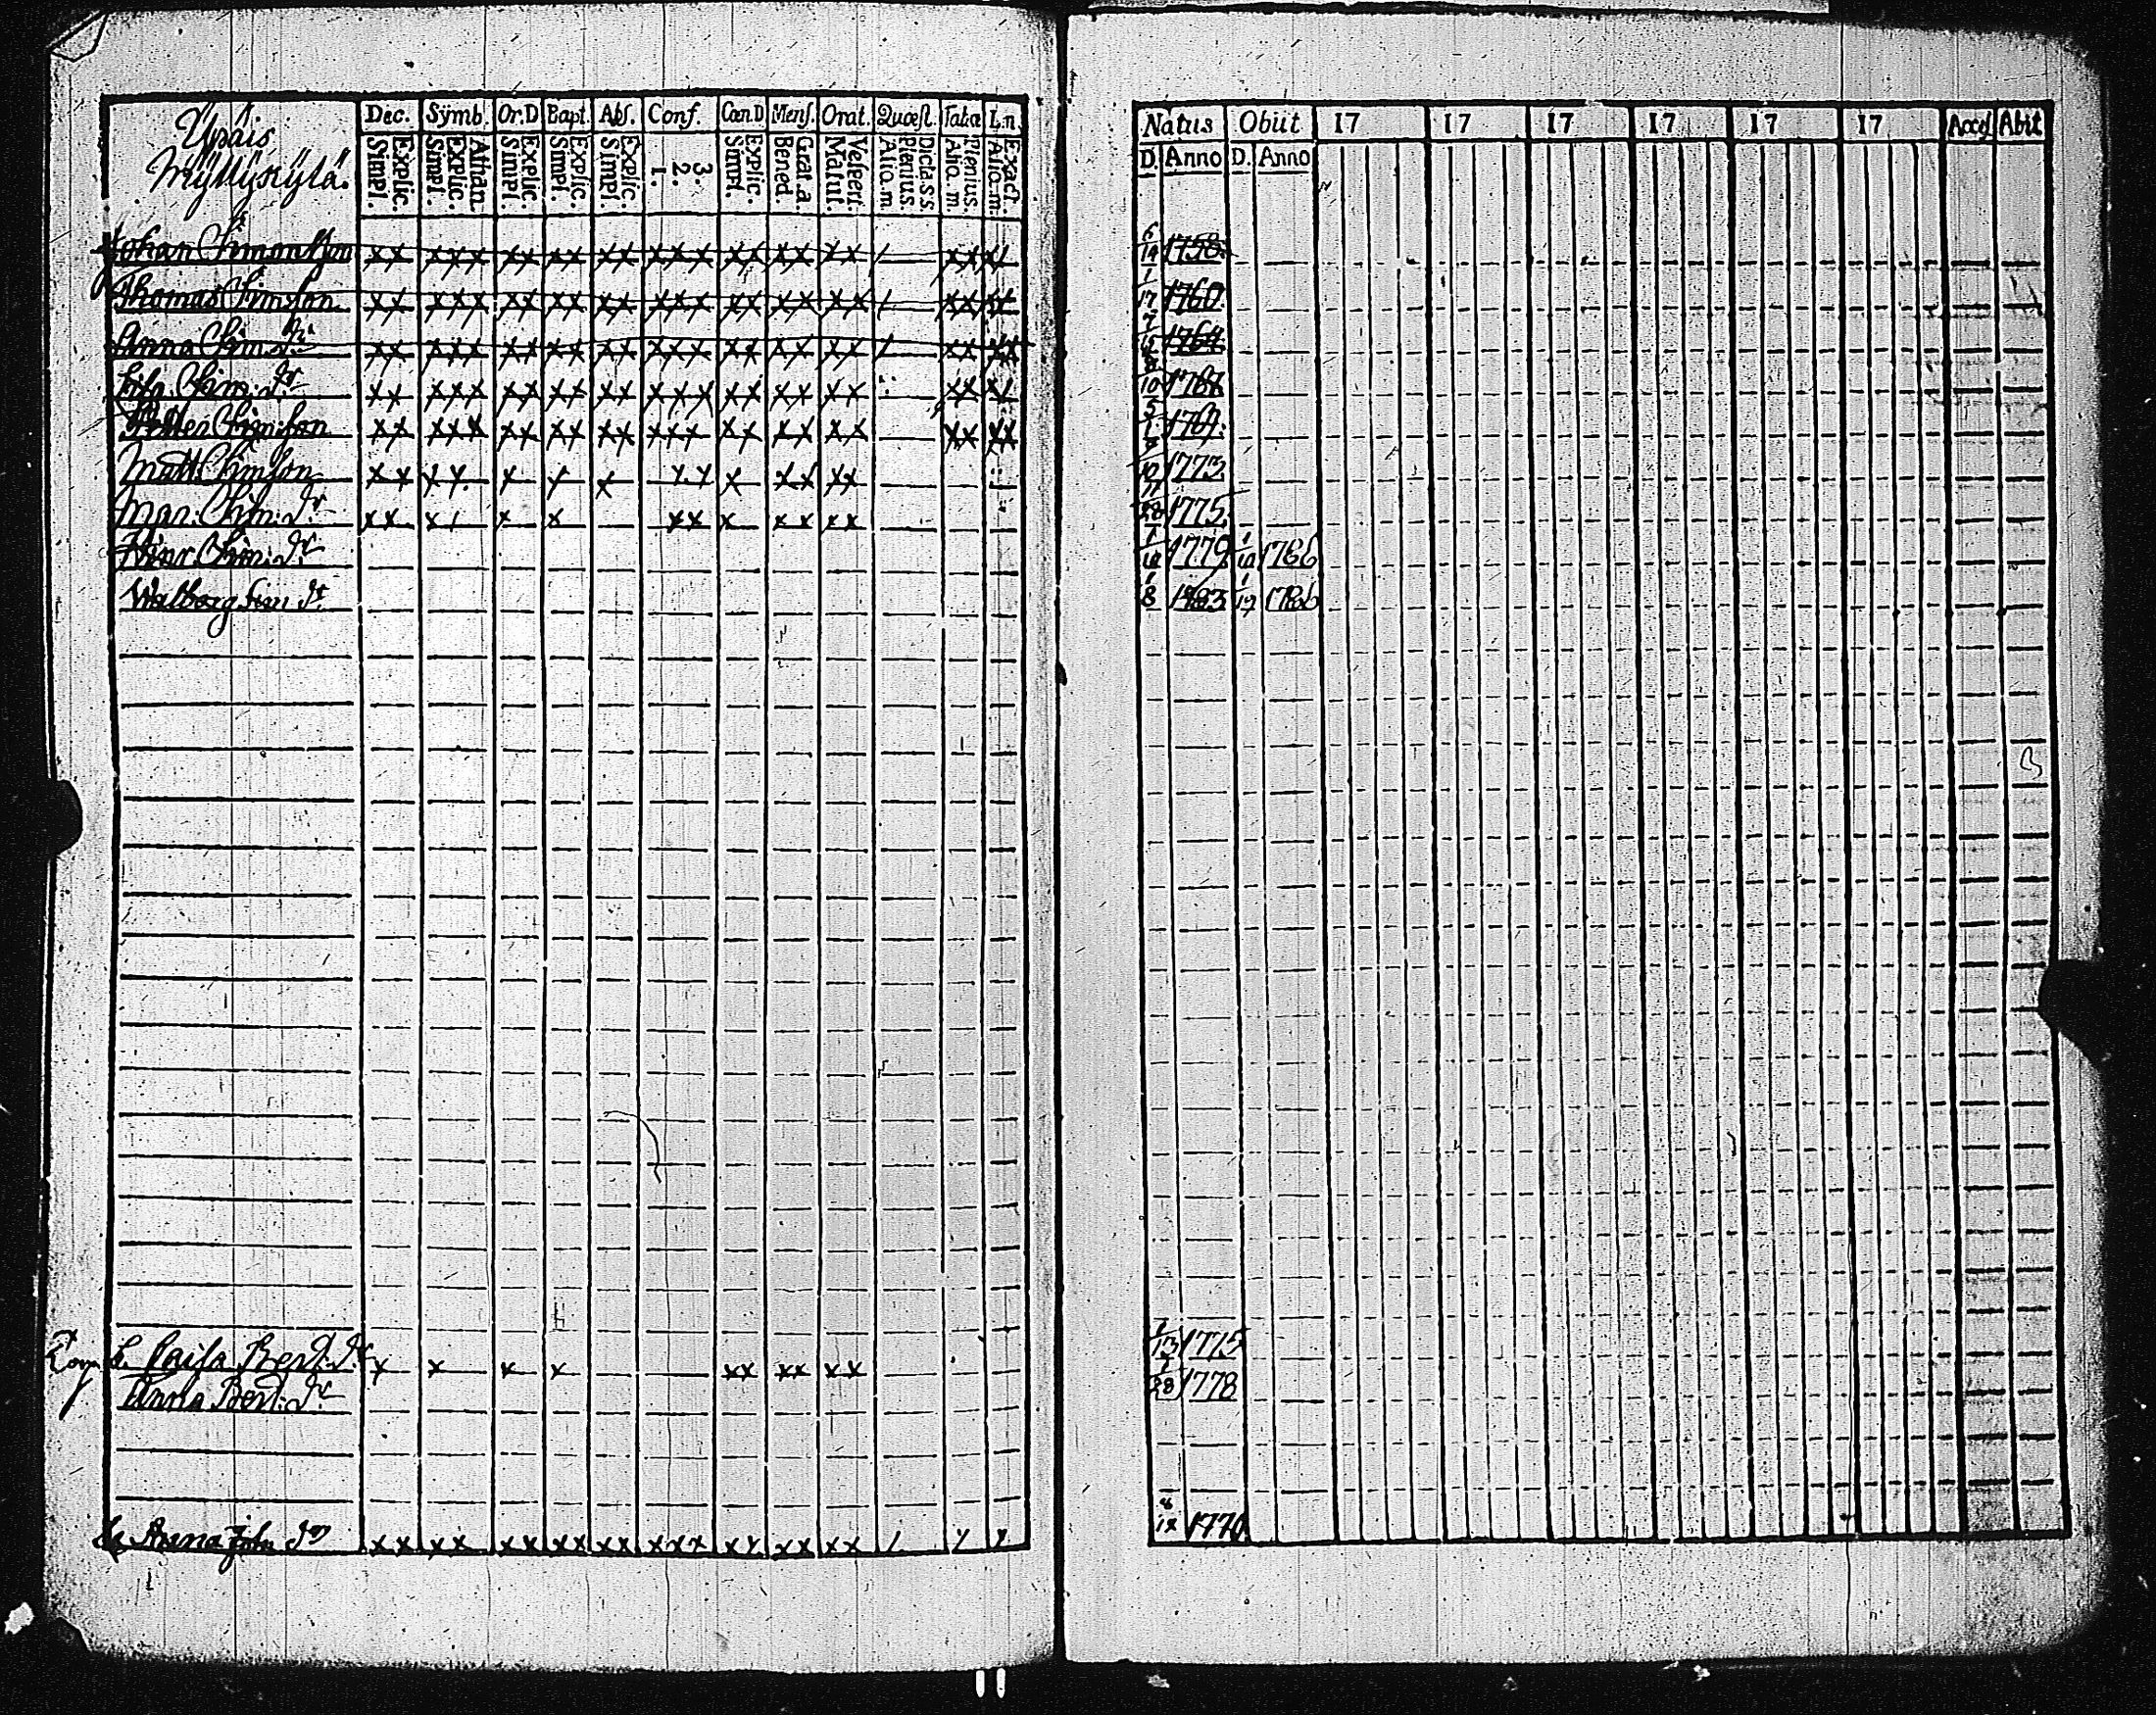 Dec. Symb. Or.D Bapt. Abs. Conf. Cœn.D Mens. Orat. Quæst. Taba L.n.
Myllykylä.
Explic. Simpl.
Athan. Explic. Simpl.
Explic. Simpl.
Explic. Simpl.
Explic. Simpl.
3. 2. 1.
Explic. Simpl.
Grat.a. Bened.
Vesperi. Matut.
Dicta.s.s. Plenius. Aliq.m.
Plenius. Aliq.m.
Exact. Aliq.m.
Natus Obiit 17 17 17 17 17 17 Acces Abit
D. Anno D. Anno
Johan Simonsson xx xxx xx xx xx xxx xx xx xx / xx x/ 6/19 1758.
Thomas Simsson xx xxx xx xx xx xxx xx xx xx / xx 1/17 1760.
Anna Sim: dr xx xxx xx xx xx xxx xx xx xx / xx xx
Sim: dr xx xxx xx xx xx xxx xx xx xx xx x/
Petter Sim:son xx xxx xx xx xx xxx xx xx xx xx xx 1769.
Matt. Simson xx xx x x x xx x xx xx 1773
Mar: Sim: dr xx x/ x x xx x xx xx 1775.
Hinr Sim: dr 1779 1/10 1786
Walborg Sim dr 1/8 1783 1/17 1786
L. Caisa Bert. dr x x x x xx xx xx 1/13 1775
Anna Bert: dr 1/28 1778
Anna Joh dr xx xx xx xx xx xxx xx xx xx / x x 1770